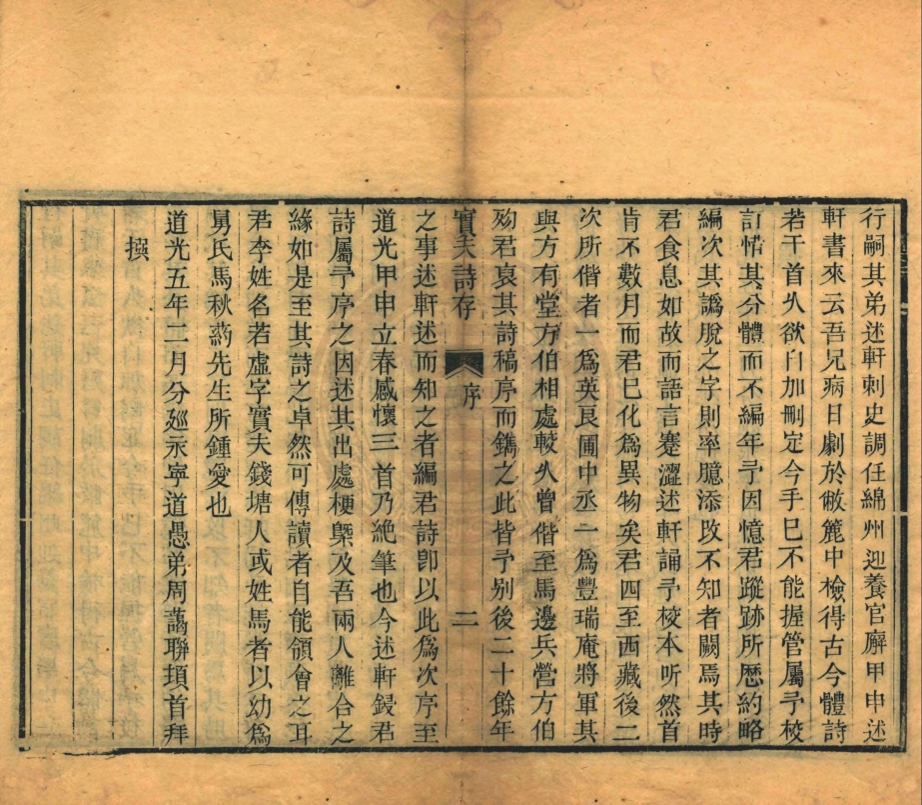 行嗣其弟述軒刺史調任綿州迎養官廨甲申述
軒書來云吾兄病日劇於敝簏中檢得古今體詩
若干首久欲自加刪定今手已不能握管屬予校
訂惜其分體而不編年予因憶君蹤跡所歷約略
編次其譌脫之字則率臆添改不知者闕焉其時
君食息如故而語言蹇澀述軒誦予校本听然首
肯不數月而君已化為異物矣君四至西藏後二
次所偕者一為英艮圃中丞一為豐瑞庵將軍其
與方有堂方伯相處較久曾偕至馬邊兵營方伯
殁君哀其詩稿序而鐫之此皆予别後二十餘年
實夫詩存 序 二
之事述軒述而知之者編君詩卽以此為次序至
道光甲申立春感懷三首乃絶筆也今述軒錢君
詩屬予序之因述其出處梗槩及吾兩人離合之
緣如是至其詩之卓然可傳讀者自能領會之耳
君李姓名若虛字實夫錢塘人或姓馬者以幼為
舅氏馬秋葯先生所鍾愛也
道光五年二月分廵永寧道愚弟周藹聯頊首拜
撰